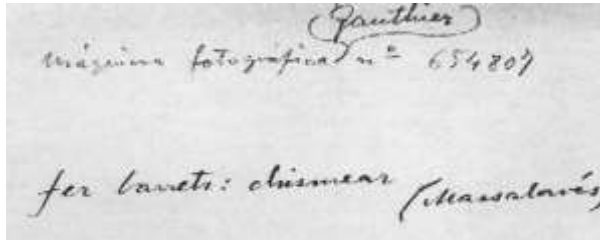 Gauthier
Máquina fotográfica nº 654807
fer barrets: chismear (Massalavés)